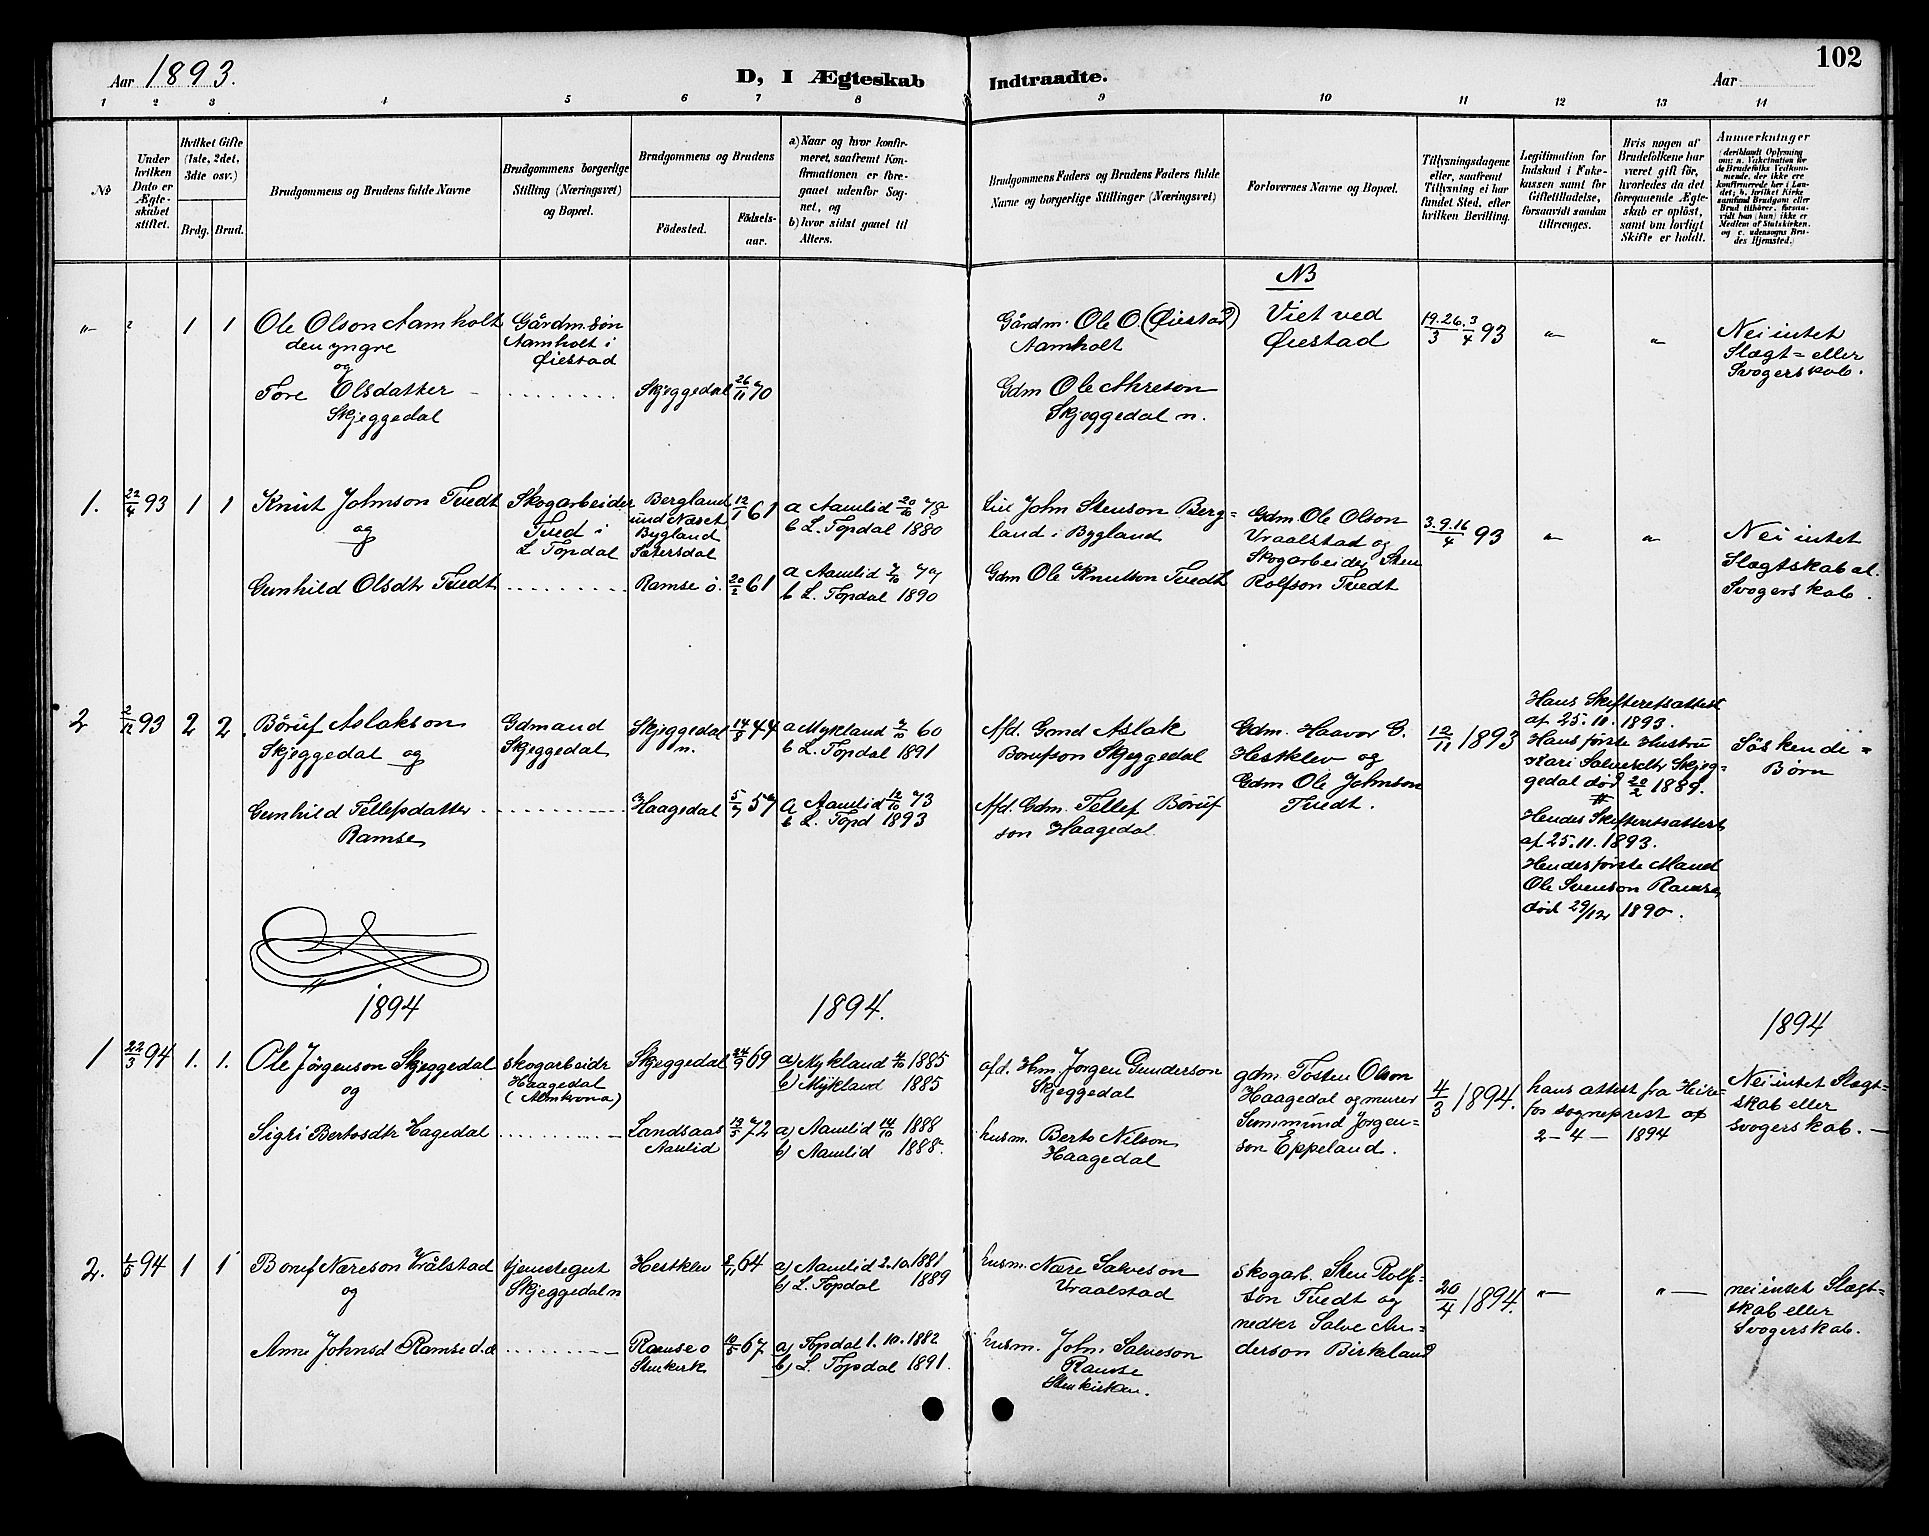 Aar 1893.
D, I Ægteskab
Indtraadte.
Aar
102
1 2 3 4 5 6 7 8 9 10 11 12 13 14
No
Under hvilken Dato er Ægteskabet stiftet.
Hvilket Gifte (1ste, 2det, 3die osv.)
Brdg. Brud.
Brudgommens og Brudens fulde Navne
Brudgommens borgerlige Stilling (Næringsvei) og Bopæl.
Brudgommens og Brudens
Födested.
Födselsaar.
a) Naar og hvor konfirmeret, saafremt Konfirmationen er foregaaet udenfor Sognet, og
b) hvor sidst gaaet til Alters.
Brudgommens Faders og Brudens Faders fulde Navne og borgerlige Stillinger (Næringsvei)
Forlovernes Navne og Bopæl.
Tillysningsdagene eller, saafremt Tillysning ei har fundet Sted, efter hvilken Bevilling.
Legitimation for Indskud i Enkekassen samt for Giftetilladelse, forsaavidt saadan tiltrænges.
Hvis nogen af Brudefolkene har været gift för, hvorledes da det foregaaende Ægteskab er oplöst, samt om lovligt Skifte er holdt.
Anmærkninger (deriblandt Oplysning om: a. Vaccination for de Brudefolks Vedkommende, der ikke ere konfirmerede her i Landet; b. hvilket Kirkesamfund Brudgom eller Brud tilhörer, forsaavidt han (hun) ikke er Medlem af Statskirken, og c. udensogns Brudes Hjemsted.)
NB
" " 1 1
Ole Olson Aamholt
den yngre
og
Tore Olsdatter
Skjeggedal
Gårdm. søn
Aamholt i
Øiestad
Skjeggedal 26/11 70
Gårdm. Ole O. (Øiestad)
Aamholt
Gdm Ole Skjeggedal n.
Viet ved
Øiestad
19.26./3 3/4 93
" "
Nei intet
Slægt= eller
Svogerskab.
1. 22/4 93 1 1
Knut Johnson Tvedt
og
Gunhild Olsdtr Tvedt
Skogarbeider
Tved i
L Topdal
Bergland
und Næset
Bygland
Sætersdal
12/1 61
Ramse ö. 20/2 61
a Aamlid 20/10 78
b L. Topdal 1880
a Aamlid 7/10 77
b L. Topdal 1890
John Stenson Berg=
land i Bygland
Gdm Ole Knutson Tvedt
Gdm. Ole Olson
Vraalstad og
Skogarbeider Sten
Rolfson Tvedt
3.9.16/4 93
" "
Nei intet
Slægtskab el.
Svogerskab.
2 2/12 93 2 2
Børuf Aslakson
Skjeggedal og
Gunhild Tellefsdatter
Ramse
Gdmand
Skjeggedal
Skjeggedal
n.
14/8 44
Haagedal 5/7 57
a Mykland 7/10 60
b L. Topdal 1891
a Aamlid 12/10 73
b L. Topd 1893
Afd. Gmd Aslak
Borufson Skjeggedal
Afd. Gdm. Tellef Børuf
son Haagedal
Gdm. Haavor G.
Hestklev og
Gdm Ole Johnson
Tvedt.
12/11 1893
Hans Skifteretsattest
af 25.11.1893.
Hans første Hustru
Kari Salvesdtr Skjeg-
gedal død 20/2 1889.
Hendes Skifteretsattest
af 25.11.1893.
Hendes første Mand
Ole Svenson Ramse
død 29/12 1890.
Søskende=
Børn
1894
1894.
1894
1 22/3 94 1. 1.
Ole Jörgenson Skjeggedal
og
Sigri Bertosdtr Hagedal
skogarbeidr
Haagedal
(Almkrona)
Skjeggedal 24/9 69
Landsaas
Aamlid
19/5 72
a) Mykland 4/10 1885
b) Mykland 1885
a) Aamlid 14/10 1888
b) Aamlid 1888.
afd. Hm. Jorgen Gunderson
Skjeggedal
husm. Berto Nilson
Haagedal
gdm. Tosten Olson
Haagedal og murer
Summund Jorgen=
son Eppeland.
4/3 1894.
hans attest fra Heire-
fos sogneprest af
2-4- 1894
Nei intet Slægt=
skab eller
svogerskab. —
2. 1/5 94 1 1
Boruf Næreson Vrålstad
og
Anne Johnsd Ramse d.d
tjenstegut
Skjeggedal n
Hestklev 8/11 64
Ramse o
Stenkirk
10/5 67
a) Aamlid 2.10.1881
b) L. Topdal 1889
a) Topdal 1.10.1882
b) L. Topdal 1891.
husm. Nære Salveson
Vraalstad
husm. John Salveson
Ramse
Stenkirken.
skogarb. Sten Rolf=
son Tvedt og
nedter Salve An=
derson Birkeland
20/4 1894.
"— "—
nei indet Slægt=
skab eller
Svogerskab.